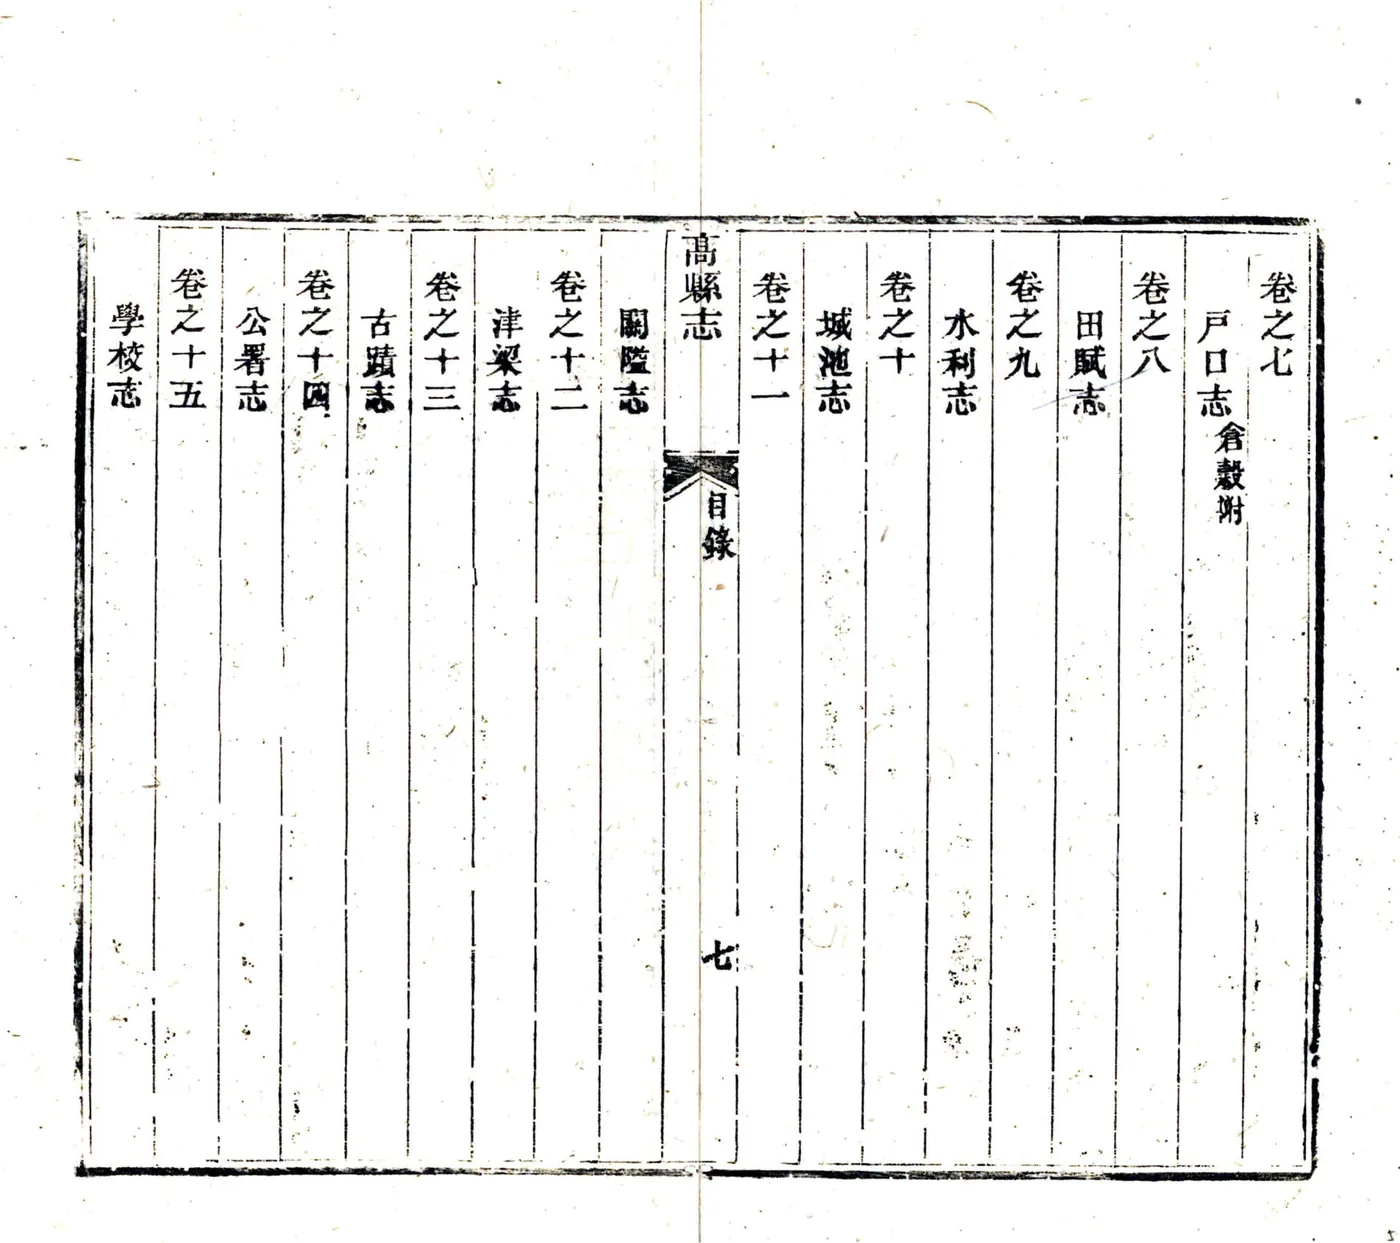 卷之七
戸口志倉穀附
卷之八
田賦志
卷之九
水利志
卷之十
城池志
卷之十一
高縣志
目錄
七
關隘志
卷之十二
津梁志
卷之十三
古蹟志
卷之十四
公署志
卷之十五
學校志